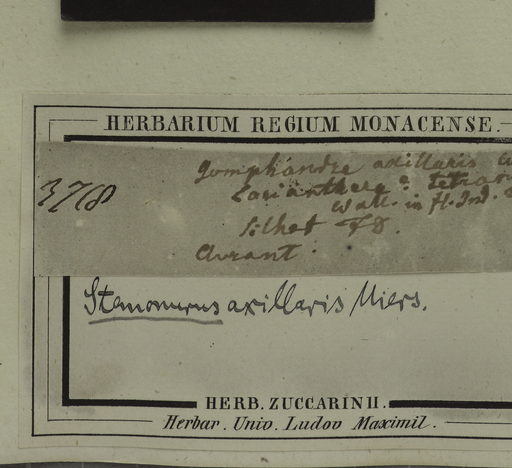 HERBARIUM REGIUM MONACENSE.
3718 Gomphandra axillaris
Lasianthera? tetran
Wall. in Fl. Ind.
Silhet F.D.
Stemonurus axillaris Miers.
HERB. ZUCCARINII.
Herbar. Univ. Ludov Maximil.